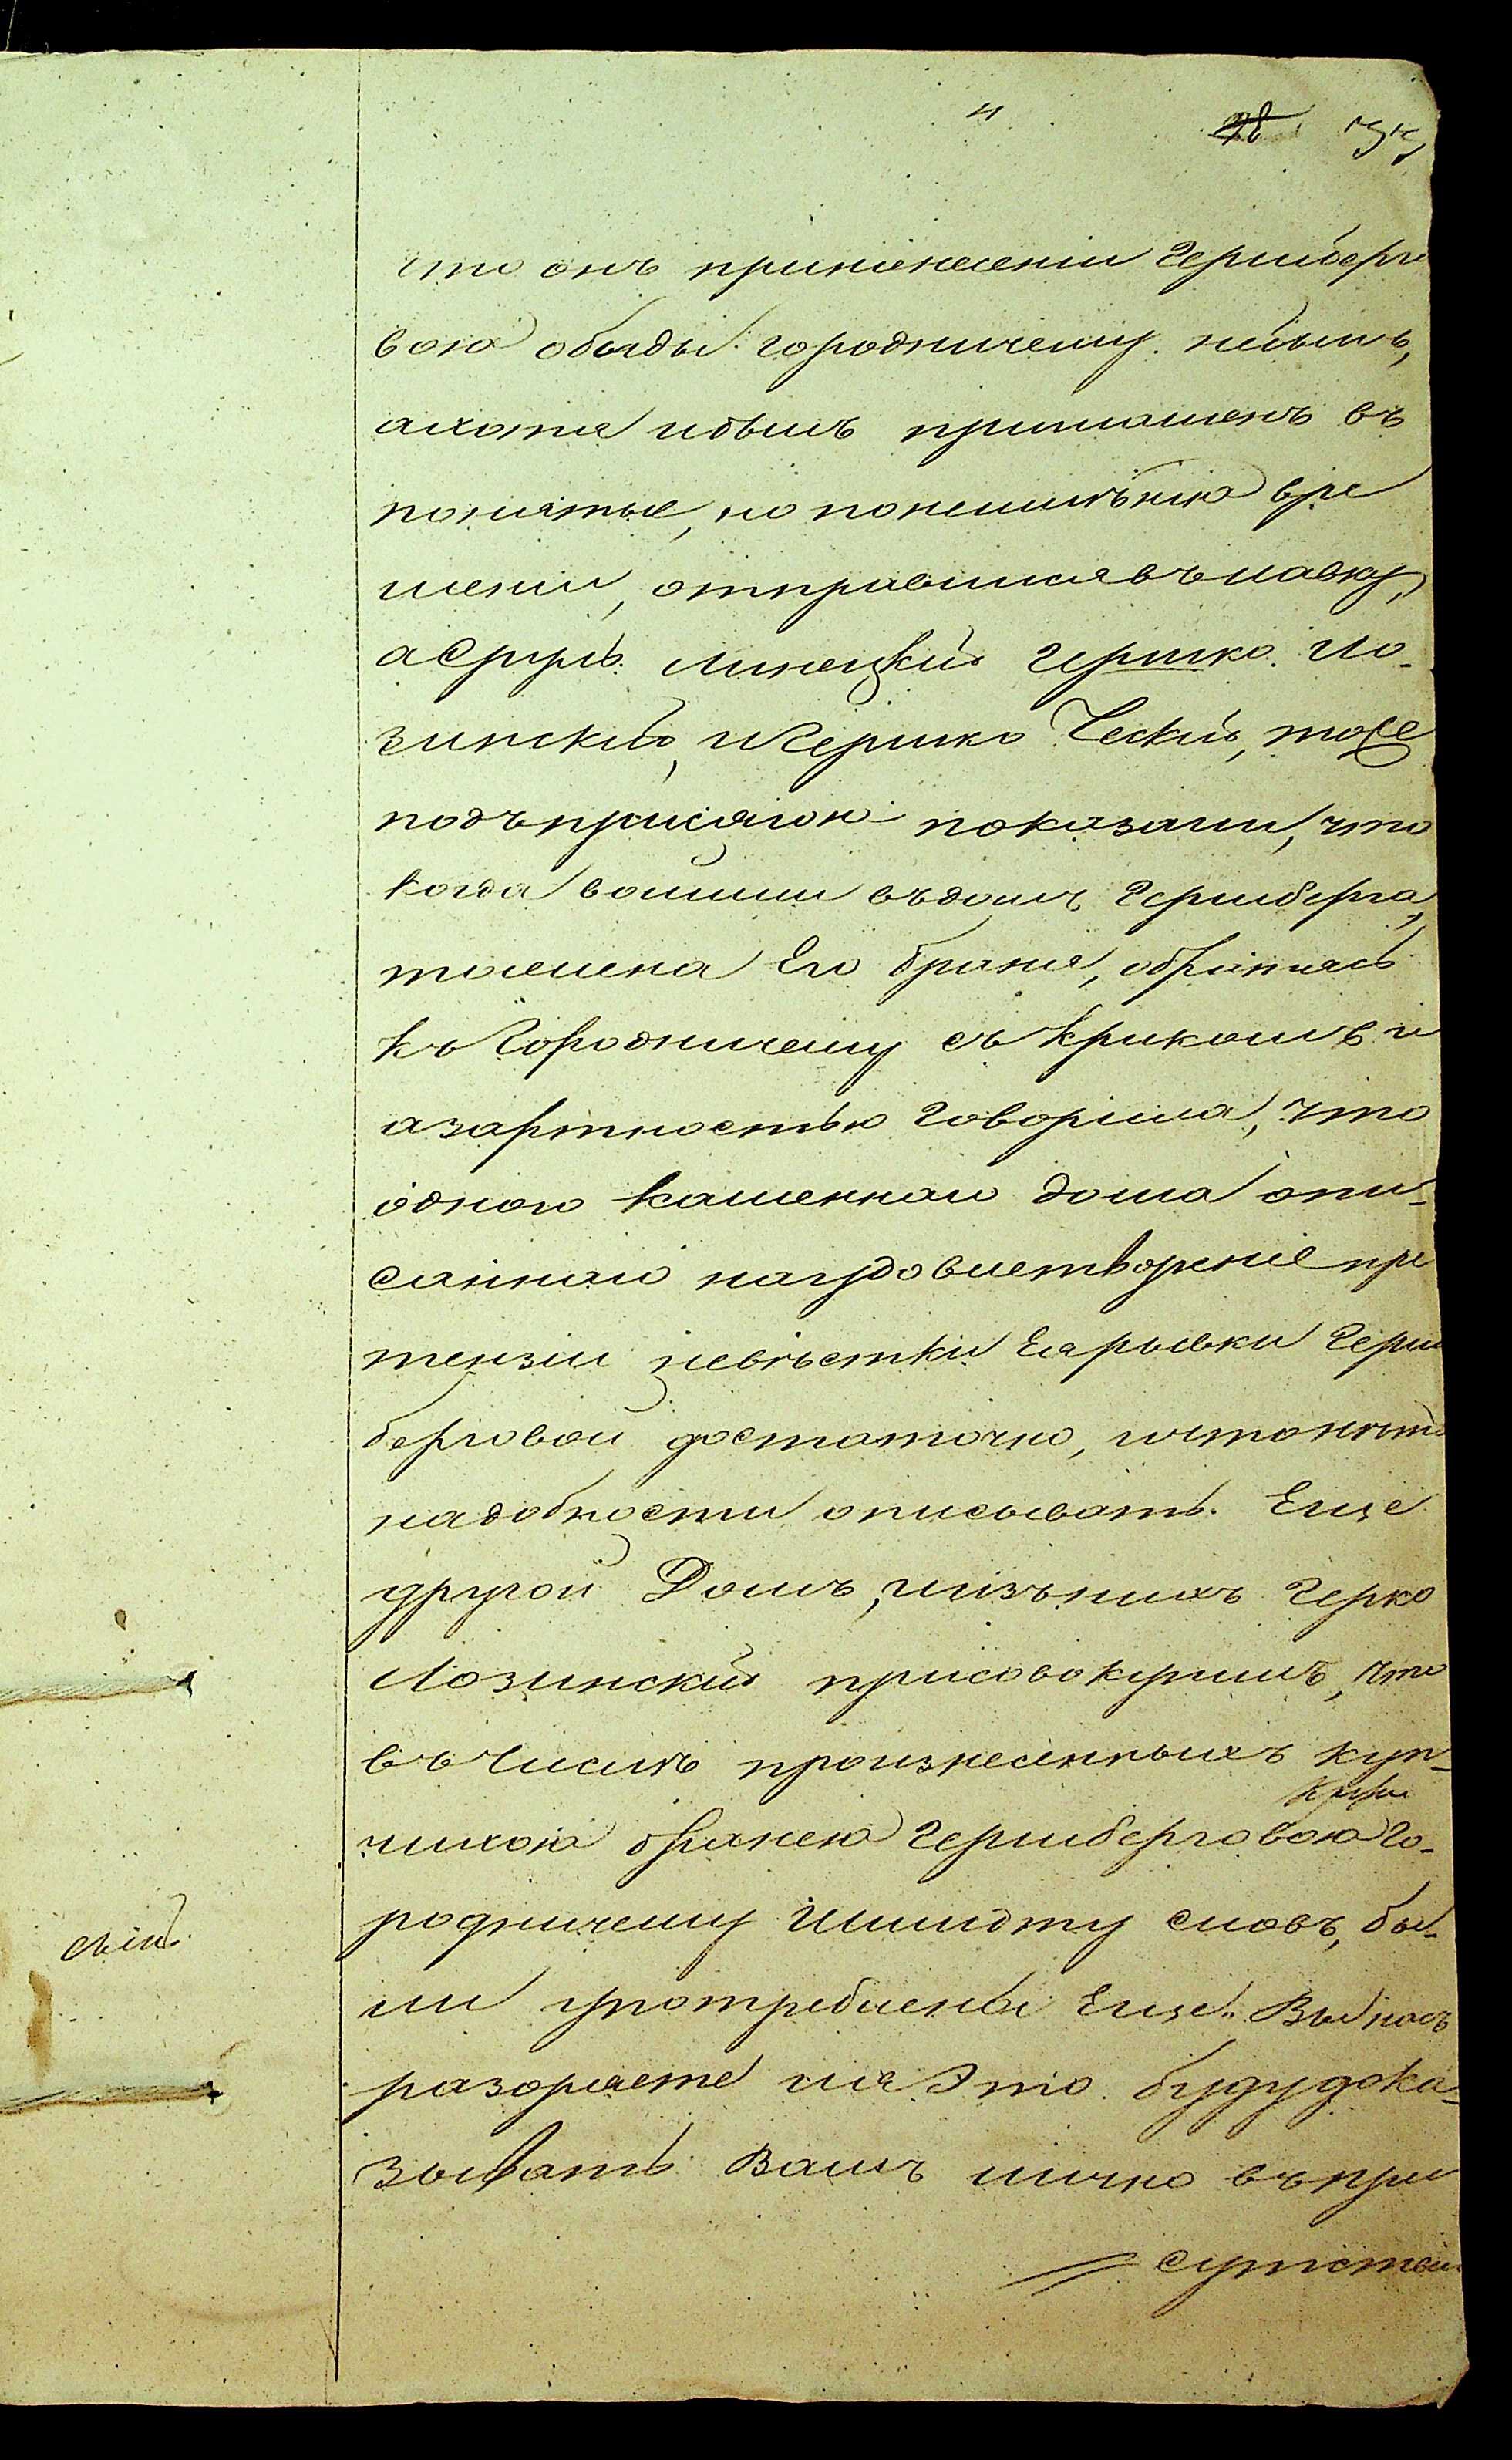 4
что онъ принанесеніи Гершберго
вою обиды городничему небылъ,
ахотя ибылъ приглашенъ въ
понятые, но понеимѣнію вре
мени, отправился въ лавку,
а Сруль Линецкій Гершко Ло-
зинскій, и Гершко Ческій, тоже
подъ присягою показали, что
когда вошли въ домъ Гершберга,
то жена Его Браня, обратясь
къ Городничему съ крикомъ и
азартностью говорила, что
одного каменнаго дома опи-
саннаго наудовлетвореніе пре
тензіи невѣстки Ея Рывки Герш
берговой достаточно, и что нѣтъ
надобности описывать Еще
другой Домъ, и изъ нихъ Герко
Лозинскій присовокупилъ, что
въ числѣ произнесенныхъ куп-
чихою Бранею Гершберговою Го-
родничему Шмидту словъ, бы-
ли употреблены Еще „Вы насъ
разоряете и я Это буду дока-
зывать Вамъ лично въ при
сутстви